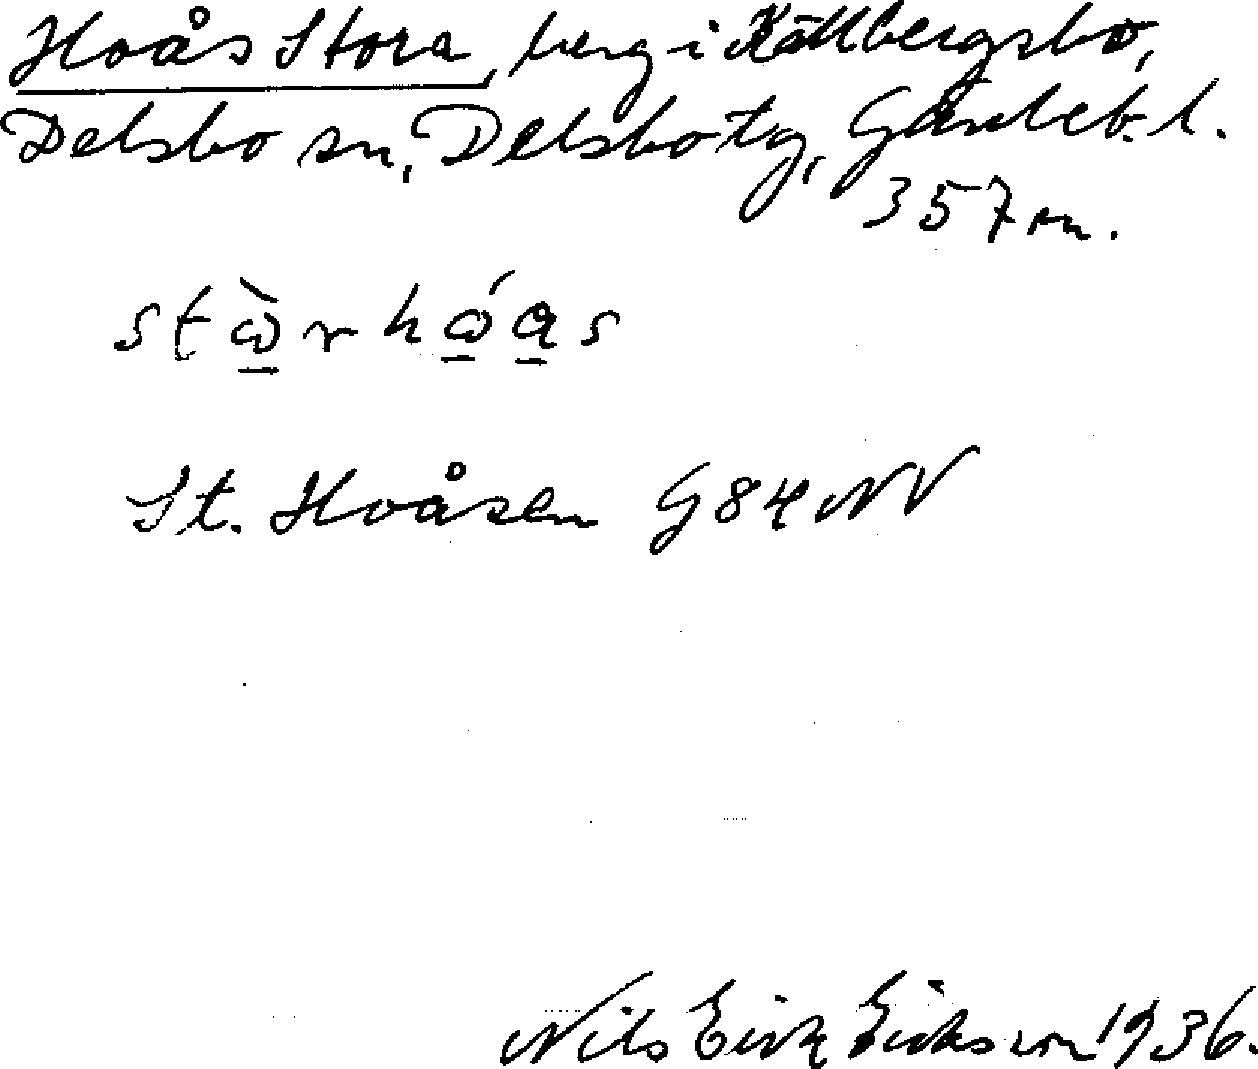 Hoås Stora, berg i Källbergsbo,
Delsbo sn, Delsbo tg, Gävleb. l.
357 m.
stὼ̲r hώ̲a̲s
St. Hoåsen G84NV
Nils Eirik Eiriksson 1936.